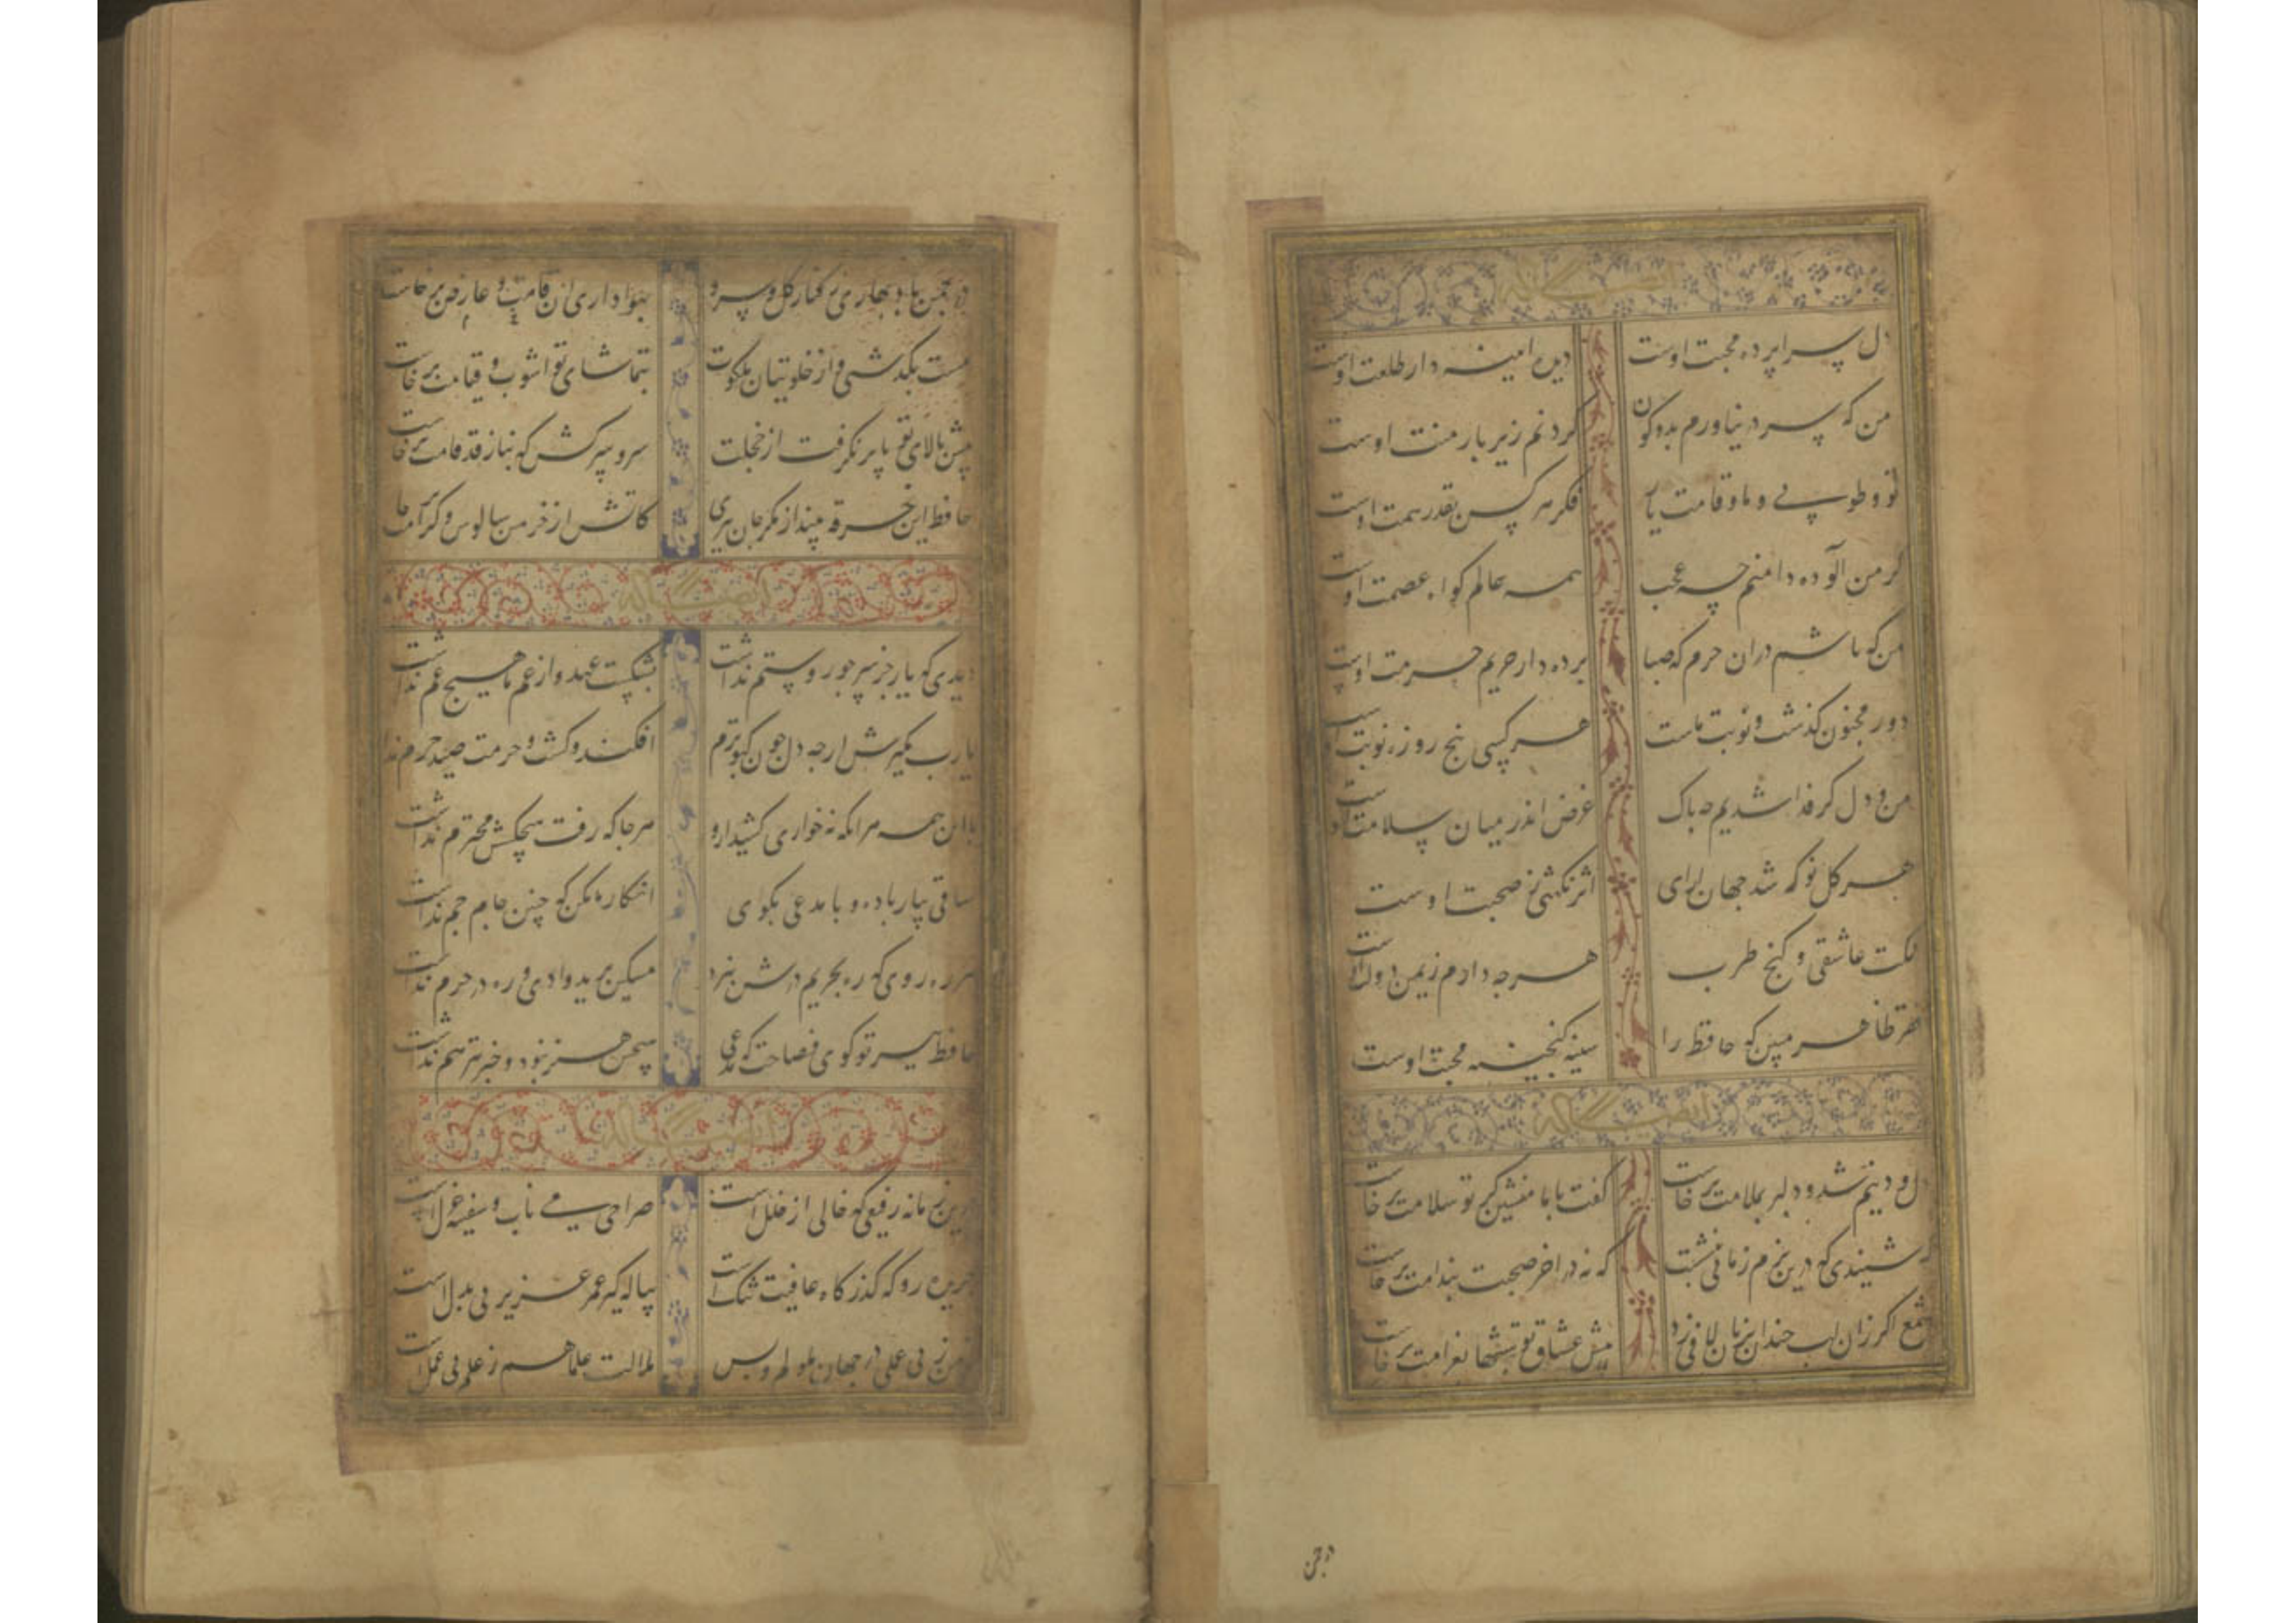 ایضا له
دل سراپرده محبت اوست دیده امینه دار طلعت اوست
من که سر در نیاورم بدو کون کردنم زیر بار منت اوست
تو و طوبی و ما و قامت یار فکر هر کس بقدر همت اوست
کر من الوده دامنم چه عجب همه عالم کواه عصمت اوست
من که باشم دران حرم که صبا پرده دار حریم حرمت اوست
دور مجنون کذشت و نوبت ماست هر کسی پنج روزه نوبت اوست
من و دل کر فدا شدیم چه باک غرض اندر میان سلامت اوست
هر کل نو که شد جهان ارای اثر نکهتی ز صحبت اوست
ملکت عاشقی و کنج طرب هرچه دارم ز یمن دولت اوست
فقر ظاهر مبین که حافظ را سینه کنجینه محبت اوست
ایضا له
دل و دینم شد و دلبر بملامت برخاست کفت با ما منشین کز تو سلامت برخاست
که شنیدی که درین بزم زمانی بنشست که نه در اخر صحبت بندامت برخاست
شمع اکر زان لب خندان بزبان لافی زد پیش عشاق تو شبها بغرامت برخاست
در چمن
در چمن باد بهاری ز کنار کل و سرو بهواداری ان قامت و عارض برخاست
مست بکذشتی و از خلوتیان ملکوت بتماشای تو اشوب و قیامت برخاست
پیش بالای تو پا بر نکرفت از خجلت سرو سرکش که بناز قد قامت برخاست
حافظ این خرقه بینداز مکر جان ببری کاتش از خرمن سالوس و کرامت خا
ایضا له
دیدی که یار جز سر جور و ستم نداشت بشکست عهد و از غم ما هیچ غم نداشت
یارب مکیرش ارچه دل چون کبوترم افکند و کشت و حرمت صید حرم ندا
با این همه مرانکه نه خواری کشید ازو هرجا که رفت هیچکسش محترم نداشت
ساقی بیار باده و با مدعی بکوی انکار ما مکن که چنین جام جم نداشت
هر ره روی که ره بحریم درش نبرد مسکین برید وادی و ره در حرم نداشت
حافظ ببر تو کوی فصاحت که مدعی هیچش هنر نبود و خبر نیز هم نداشت
ایضا له
درین زمانه رفیقی که خالی از خلل است صراحی می ناب و سفینه غزل است
جریده رو که کذرکاه عافیت تنک است پیاله کیر که عمر عزیز بی بدل است
نه من ز بی عملی در جهان ملولم و بس ملالت علما هم ز علم بی عمل است